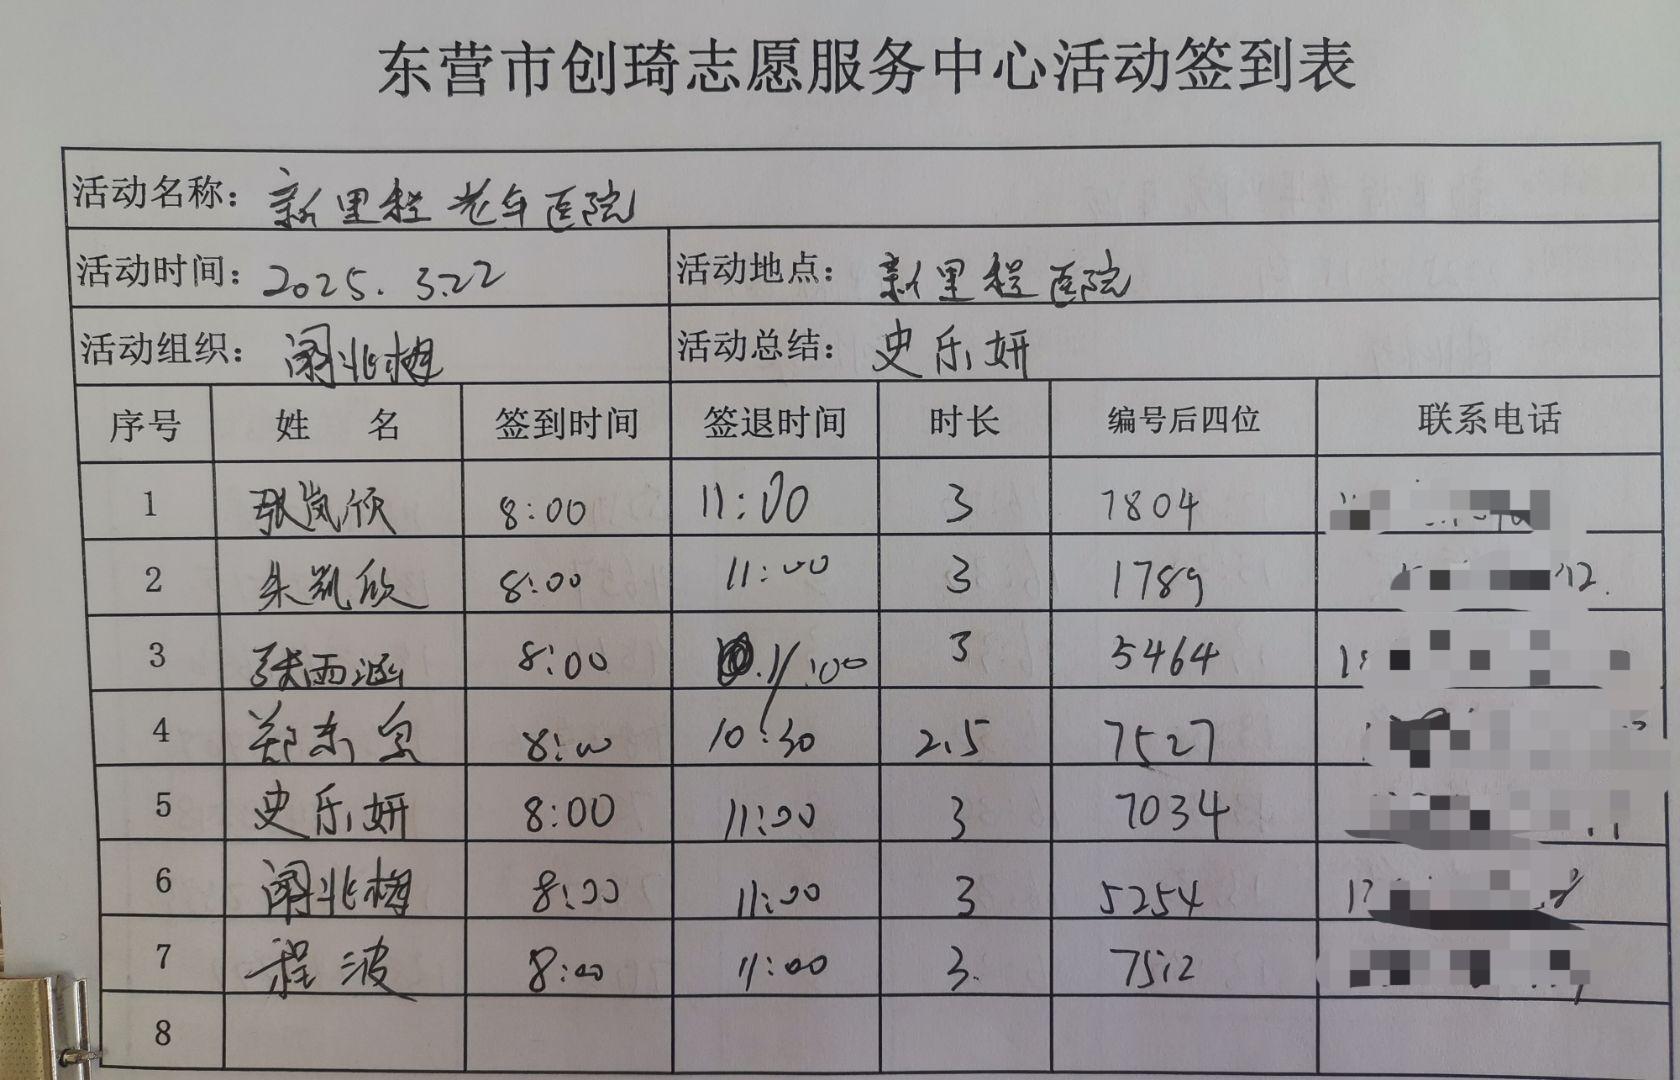 东营市创琦志愿服务中心活动签到表
活动名称：新里程老年医院
活动时间：2025.3.22 活动地点：新里程医院
活动组织：阚兆梅 活动总结：史乐妍
序号 姓名 签到时间 签退时间 时长 编号后四位 联系电话
1 张岚欣 8:00 11:00 3 7804
2 朱凯欣 8:00 11:00 3 1789
3 张雨涵 8:00 11:00 3 5464
4 郑东 8:00 10:30 2.5 7527
5 史乐妍 8:00 11:00 3 7034
6 阚兆梅 8:00 11:00 3 5254
7 程波 8:00 11:00 3 7512
8